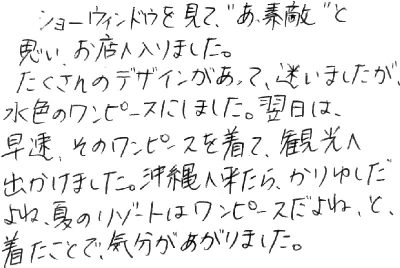 ショーウィンドウを見て、"あ、素敵"と
思い、お店へ入りました。
たくさんのデザインがあって、迷いましたが、
水色のワンピースにしました。翌日は、
早速、そのワンピースを着て、観光へ
出かけました。沖縄へ来たら、かりゆしだ
よね、夏のリゾートはワンピースだよね、と、
着たことで、気分があがりました。